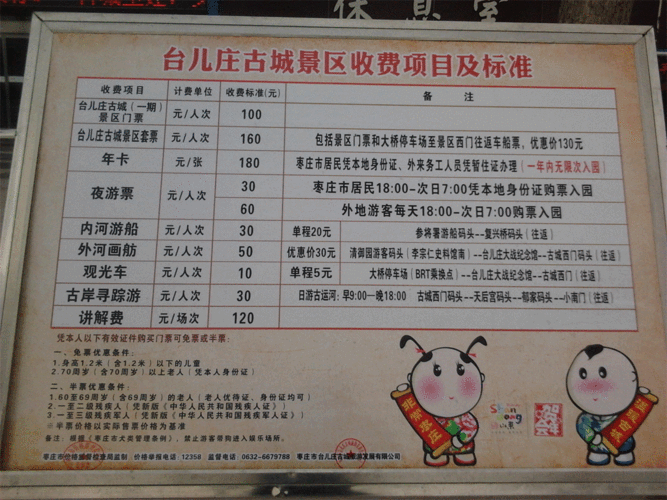 休息室
台儿庄古城景区收费项目及标准
收费项目 计费单位 收费标准(元) 备 注
台儿庄古城（一期）景区门票 元/人次 100
台儿庄古城景区套票 元/人次 160 包括景区门票和大桥停车场至景区西门往返车船票，优惠价130元
年卡 元/张 180 枣庄市居民凭本地身份证、外来务工人员凭暂住证办理（一年内无限次入园）
夜游票 元/人次 30 枣庄市居民18:00-次日7:00凭本地身份证购票入园
60 外地游客每天18:00-次日7:00购票入园
内河游船 元/人次 30 单程20元 参将署游船码头--复兴桥码头（往返）
外河画舫 元/人次 50 优惠价30元 清御园游客码头（李宗仁史料馆南）--台儿庄大战纪念馆--古城西门码头（往返）
观光车 元/人次 10 单程5元 大桥停车场（BRT乘换点）--台儿庄大战纪念馆--古城西门（往返）
古岸寻踪游 元/人次 30 日游古运河：早9:00—晚18:00 古城西门码头--天后宫码头--郁家码头--小南门（往返）
讲解费 元/场次 120
凭本人以下有效证件购买门票可免票或半票：
一、免票优惠条件：
1.身高1.2米（含1.2米）以下的儿童
2.70周岁（含70周岁）以上老人（凭本人身份证）
二、半票优惠条件：
1.60至69周岁（含69周岁）的老人（老人优待证、身份证均可）
2.一至二级残疾人（凭新版《中华人民共和国残疾人证》）
3.一至三级残疾军人（凭新版《中华人民共和国残疾军人证》）
※半票价格以实际售票价格为基准
备注：根据《枣庄市犬类管理条例》，禁止游客带狗进入娱乐场所。
枣庄市价格监督检查局监制 价格举报电话：12358 监督电话：0632-6679788 枣庄市台儿庄古城旅游发展有限公司